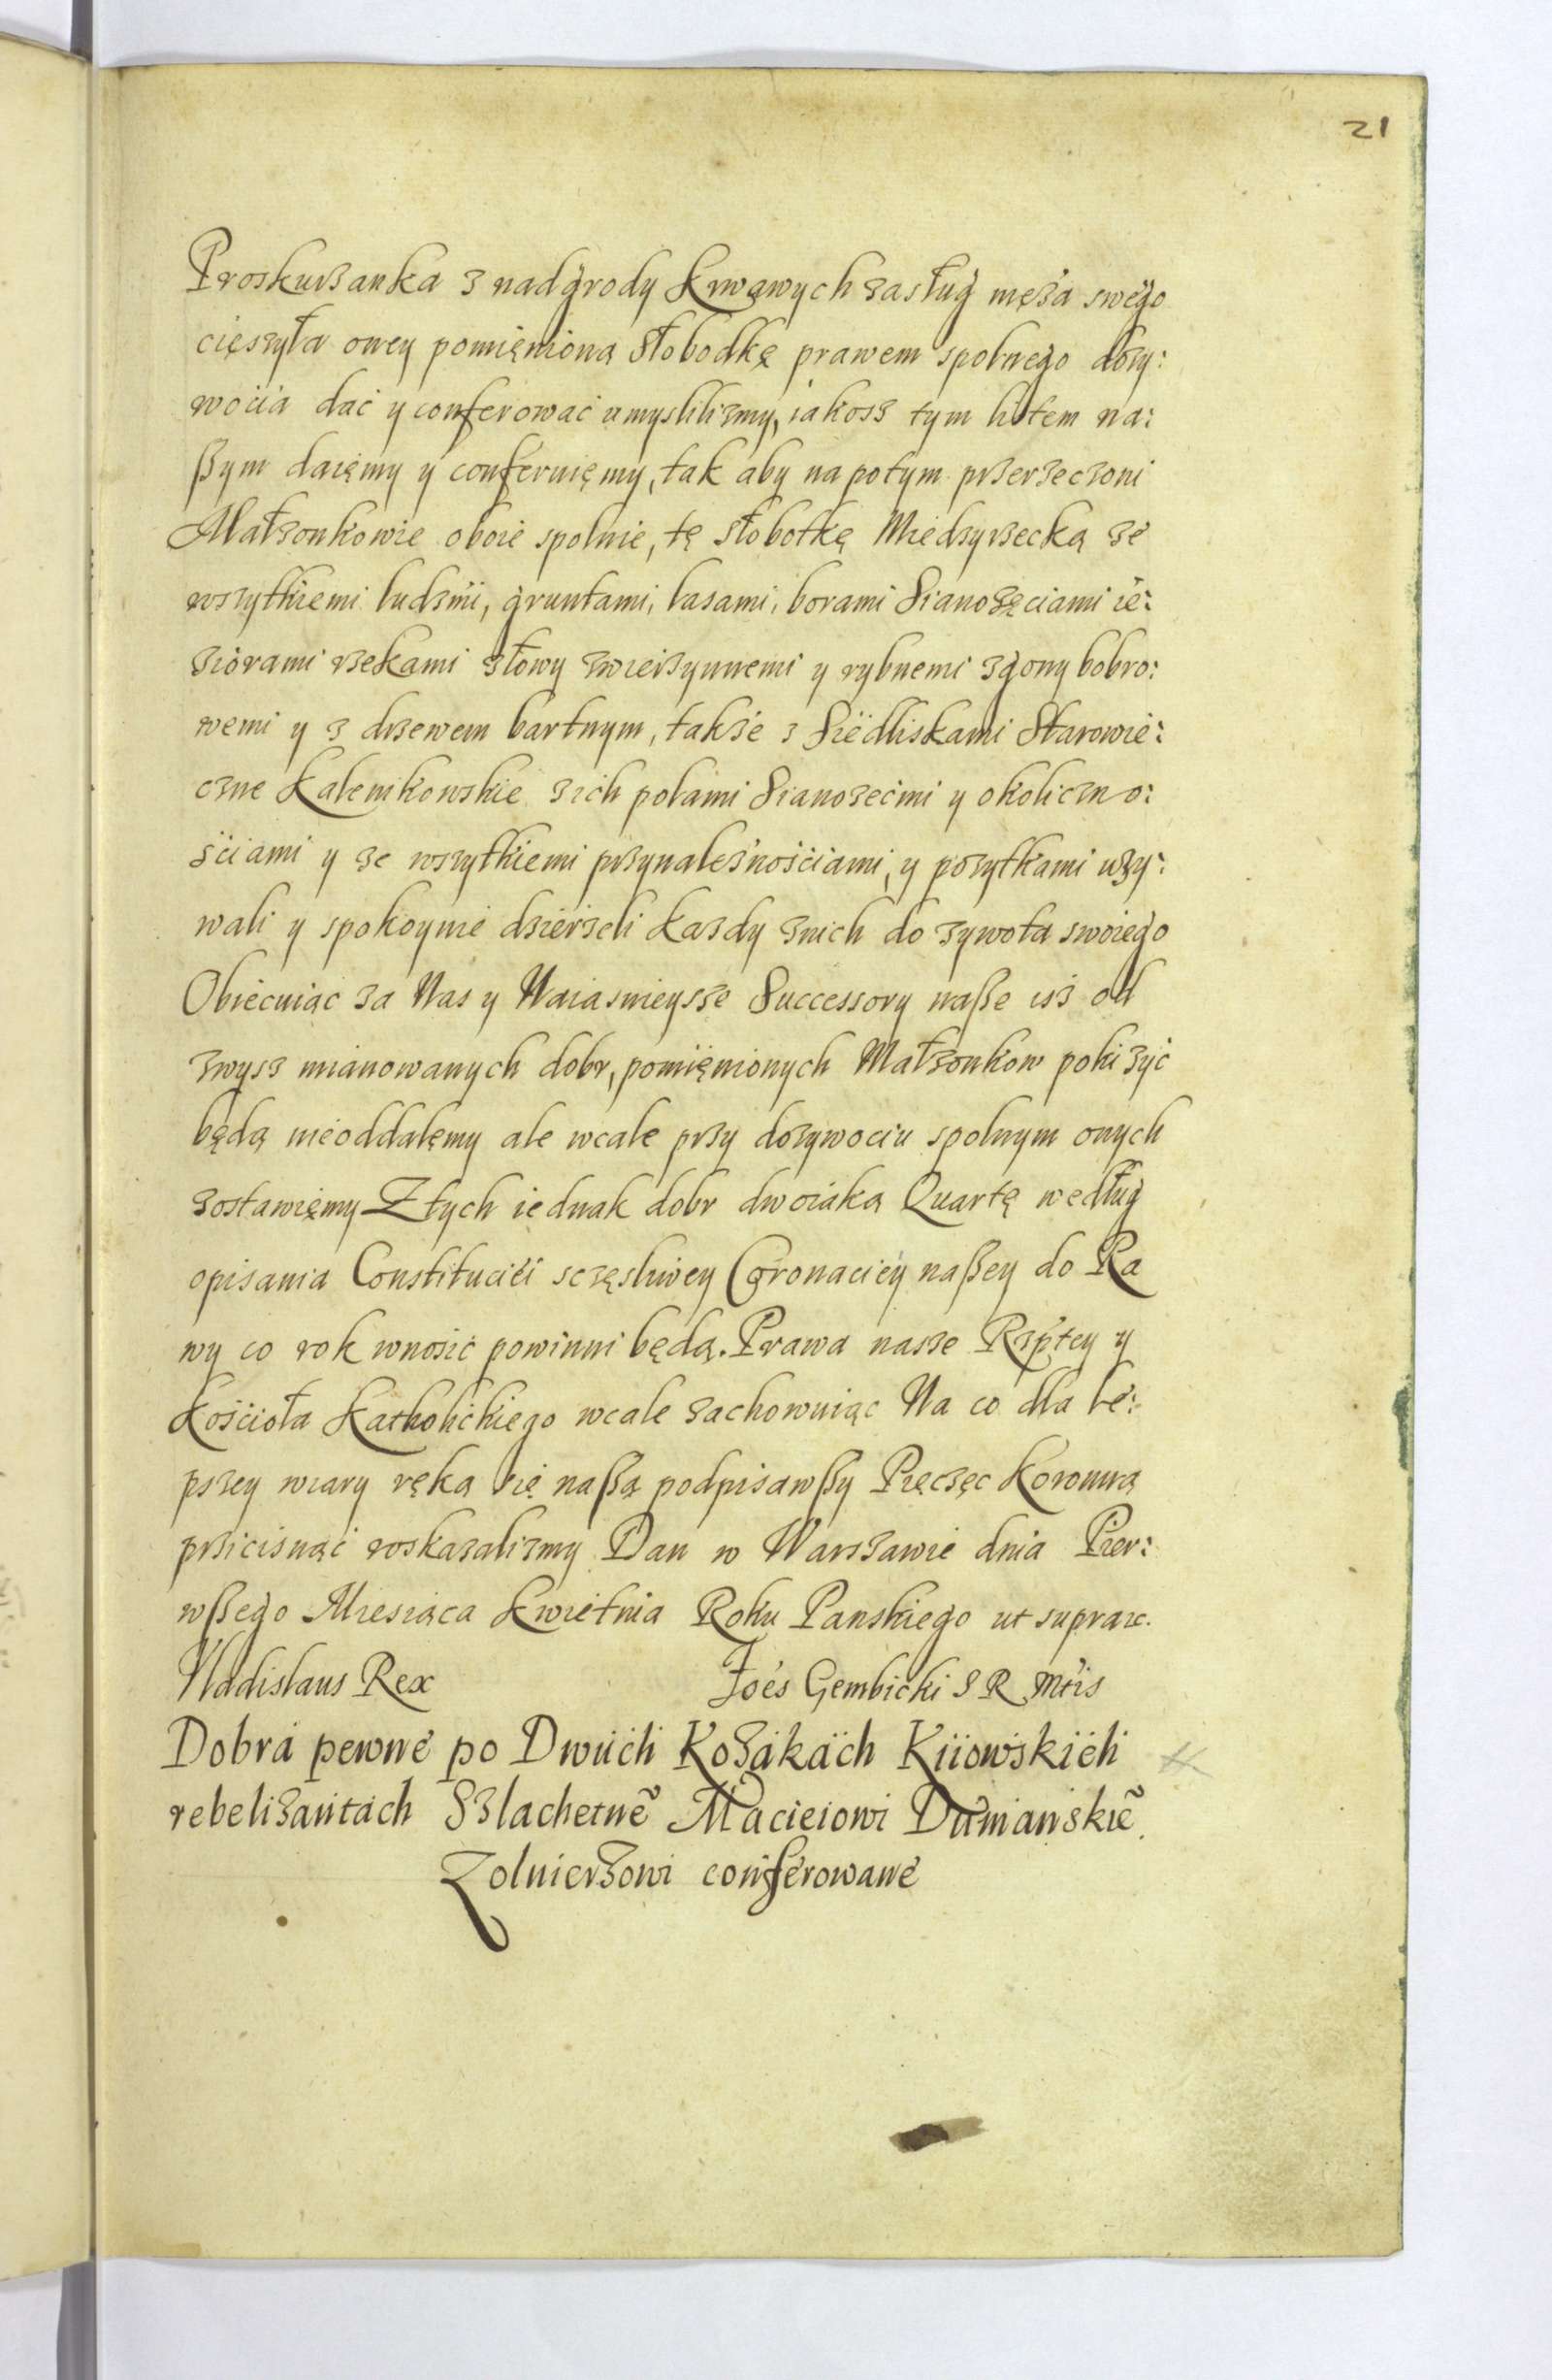 21
Proskurzanka z nadgrody krwawych zasług męża swego
cięszyła owey pomięnioną Słobodkę prawem spolnego doży:
wocia dać y conferować umyslilizmy, iakosz tym listem na:
szym daięmy y conferuięmy, tak aby na potym przerzeczoni
Małzonkowie oboie spolnie, tę słobotkę Miedzyrzecką ze
wszytkiemi ludzmi, gruntami, lasami, borami Sianożęciami ie:
ziorami rzekami złowy zwierzynnemi y rybnemi zgony bobro:
wemi y z drzewem bartnym, także z Siedliskami Starowie:
czne Kalenikowskie zich polami Sianozećmi y okoliczno:
ściami y ze wszytkiemi przynależnościami, y pozytkami uzy:
wali y spokoynie dzierżeli kazdy znich do zywota swoiego
Obiecuiąc za Nas y Naiasnieysze Successory nasze isz od
zwysz mianowanych dobr, pomięnionych Małzonkow poki zyć
będą nieoddalęmy ale wcale przy dozywociu spolnym onych
zostawięmy Z tych iednak dobr dwoiaką Quartę według
opisania Constituciei sczęsliwey Coronaciey naszey do Ra
wy co rok wnosić powinni będą. Prawa nasze Rzptey y
Kościoła Katholickiego wcale zachowuiąc Na co dla le:
pszey wiary ręką się naszą podpisawszy Pięczęc koronną
przicisnąć roskazalizmy Dan w Warszawie dnia Pier:
wszego Miesiąca Kwietnia Roku Panskiego ut supra ic.
Vladislaus Rex Joes Gembicki S R Mtis
Dobra pewne po Dwuch Kozakach Kiiowskich
rebelizantach Szlachetnẽ Macieiowi Dumianskiẽ
Zolnierzowi conferowane